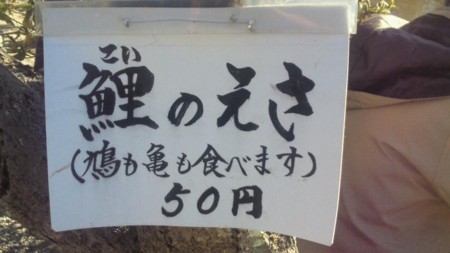 こい
鯉のえさ
(鳩も亀も食べます)
50円